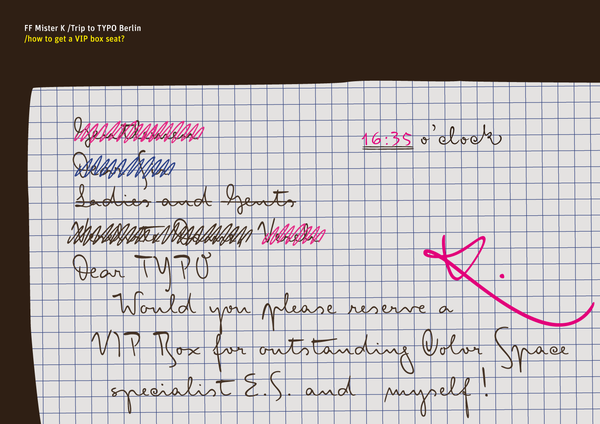 FF Mister K /Trip to TYPO Berlin
/how to get a VIP box seat?
16:35 o'clock
Ladies and Gents
Dear TYPO
Would you please reserve a
VIP Box for outstanding Color Space
specialist E.S. and myself!